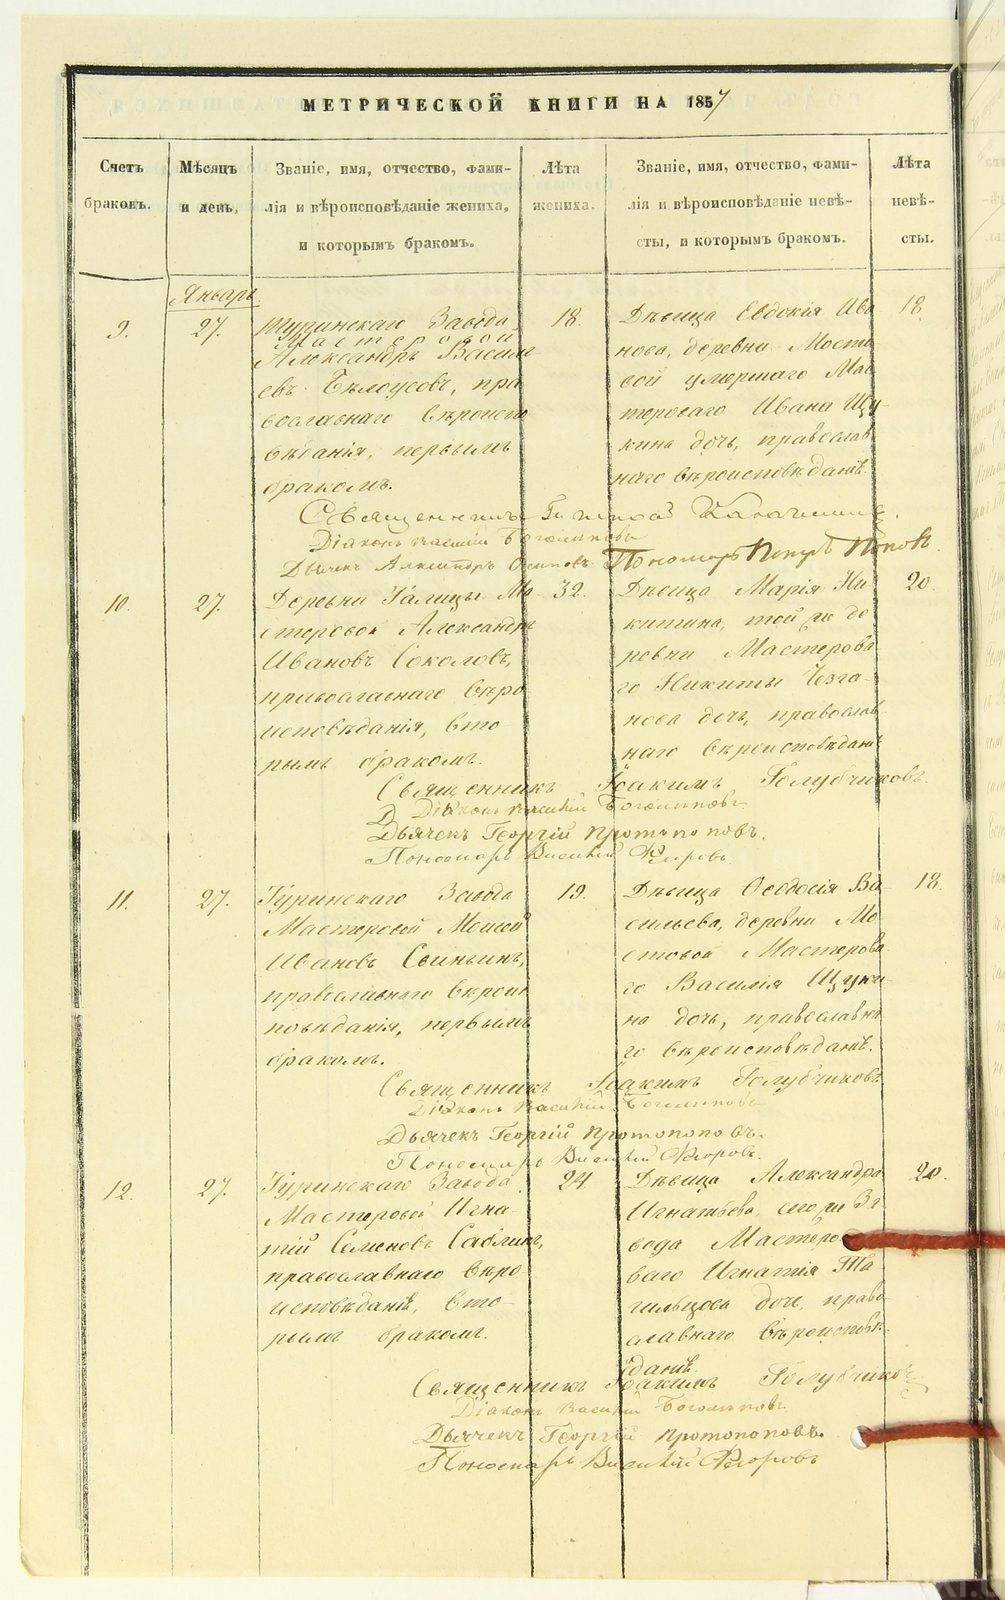 МЕТРИЧЕСКОЙ КНИГИ НА 1857
Счетъ браковъ.
Мѣсяцъ и день.
Званіе, имя, отчество, фами-
лія и вѣроисповѣданіе жениха,
и которымъ бракомъ.
Лѣта жениха.
Званіе, имя, отчество, фами-
лія и вѣроисповѣданіе невѣ-
сты, и которымъ бракомъ.
Лѣта невѣ-
сты.
Январь
9.
27.
Туринскаго Завода
Мастеровой
Александръ Василь
евъ Бѣлоусовъ, пра
вославнаго вѣроиспо
вѣданія, первымъ
бракомъ.
18.
Дѣвица Евдокія Ива
нова, деревни Мосто
вой умершаго Мас
тероваго Ивана Щу-
кина дочь, православ
наго вѣроисповѣданіѣ.
18.
Священникъ
Діаконъ Василій Боголѣповъ
Дьячекъ Александръ Осиповъ Пономарь Петръ Поповъ.
10.
27.
Деревни Галицы Ма
стеровой Александръ
Ивановъ Соколовъ,
православнаго вѣро
исповѣданія, вто-
рымъ бракомъ.
32.
Дѣвица Марія Ни-
китина, той же де
ревни Мастерова
го Никиты
нова дочь, православ-
наго вѣроисповѣданіѣ
20.
Священникъ Іоакимъ Голубчиковъ.
Діаконъ Василій Боголѣповъ
Дьячекъ Георгій Протопоповъ.
Пономарь Василій Флоровъ.
11.
27.
Туринскаго Завода
Мастеровой Моисей
Ивановъ Свиньинъ,
православнаго вѣроис
повѣданія, первымъ
бракомъ.
19.
Дѣвица Ѳеодосія Ва-
сильева, деревни Мо
стовой Мастерова-
го Василія Щуки-
на дочь, православна
го вѣроисповѣданіѣ.
18.
Священникъ Іоакимъ Голубчиковъ
Діаконъ Василій Боголѣповъ
Дьячекъ Георгій Протопоповъ.
Пономарь Василій Флоровъ.
12.
27.
Туринскаго Завода
Мастеровой Игна
тій Семеновъ Саблинъ,
православнаго вѣро
исповѣданіѣ, вто-
рымъ бракомъ.
24
Дѣвица Александра
Игнатьева, сего же За
вода Мастеро
ваго Игнатія Та
гильцова дочь, право
славнаго вѣроисповѣ-
даніѣ.
20.
Священникъ Іоакимъ Голубчиковъ
Діаконъ Василій Боголѣповъ
Дьячекъ Георгій Протопоповъ.
Пономарь Василій Флоровъ